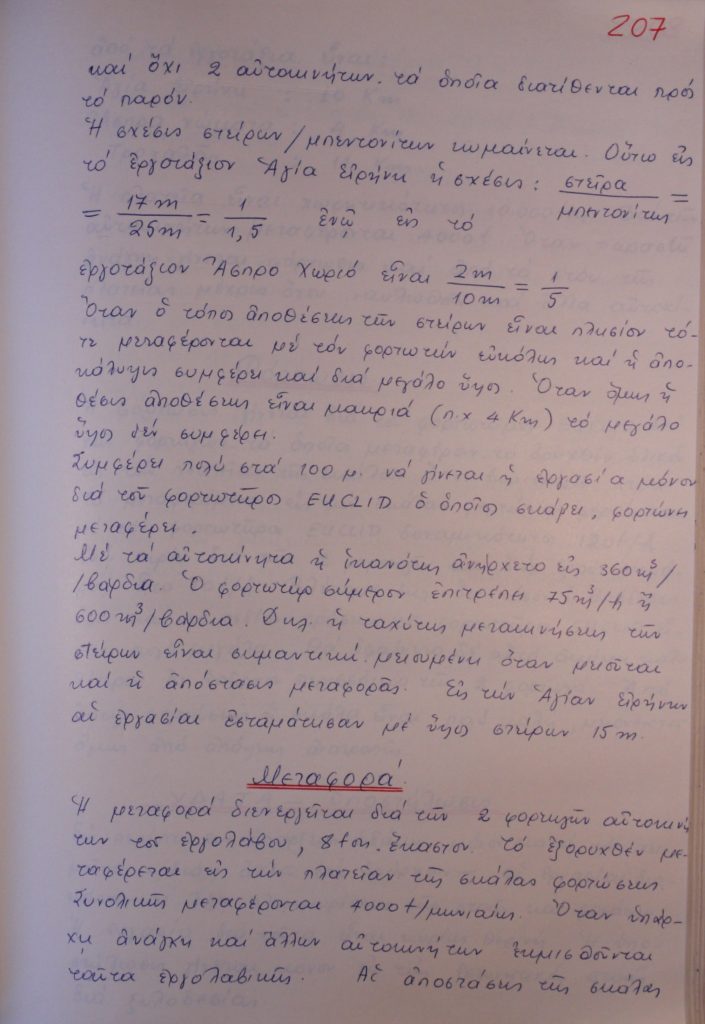 207
καί ὄχι 2 αὐτοκινήτων. τά ὁποῖα διατίθενται πρός
τό παρόν.
Ἡ σχέσις στείρων/μπεντονίτων κυμαίνεται. Οὕτω εἰς
τό ἐργοτάξιον Ἁγία Εἰρήνη ἡ σχέσις: στεῖρα/μπεντονίτης =
= 17m/25m = 1/1,5 ἐνῶ εἰς τό
ἐργοτάξιον Ἄσπρο Χωριό εἶναι 2m/10m = 1/5
Ὅταν ὁ τόπος ἀποθέσεως τῶν στείρων εἶναι πλησίον τό-
τε μεταφέρονται μέ τόν φορτωτήν εὐκόλως καί ἡ ἀπο-
κάλυψις συμφέρει καί διά μεγάλο ὕψος. Ὅταν ὅμως ἡ
θέσις ἀποθέσεως εἶναι μακριά (π.χ 4 Km) τό μεγάλο
ὕψος δέν συμφέρει.
Συμφέρει πολύ στά 100 μ. νά γίνεται ἡ ἐργασία μόνον
διά τοῦ φορτωτῆρος EUCLID ὁ ὁποῖος σκάβει, φορτώνει
μεταφέρει.
Μέ τά αὐτοκίνητα ἡ ἱκανότης ἀνήρχετο εἰς 360 m³/
/βάρδια. Ὁ φορτωτήρ σήμερον ἐπιτρέπει 75 m³/h ἤ
600 m³/βάρδια. Δηλ. ἡ ταχύτης μετακινήσεως τῶν
στείρων εἶναι σημαντική μειωμένη ὅταν μειοῦται
καί ἡ ἀπόστασις μεταφορᾶς. Εἰς τήν Ἁγίαν Εἰρήνην
αἱ ἐργασίαι ἐσταμάτησαν μέ ὕψος στείρων 15 m.
Μεταφορά
Ἡ μεταφορά διενεργεῖται διά τῶν 2 φορτηγῶν αὐτοκινή
των τοῦ ἐργολάβου, 8 ton. ἕκαστον. Τό ἐξορυχθέν με-
ταφέρεται εἰς τήν πλατεῖαν τῆς σκάλας φορτώσεως.
Συνολικῶς μεταφέρονται 4000 t/μηνιαίως. Ὅταν ὑπάρ-
χη ἀνάγκη καί ἄλλων αὐτοκινήτων ἐκμισθοῦνται
ταῦτα ἐργολαβικῶς. Αἱ ἀποστάσεις τῆς σκάλας